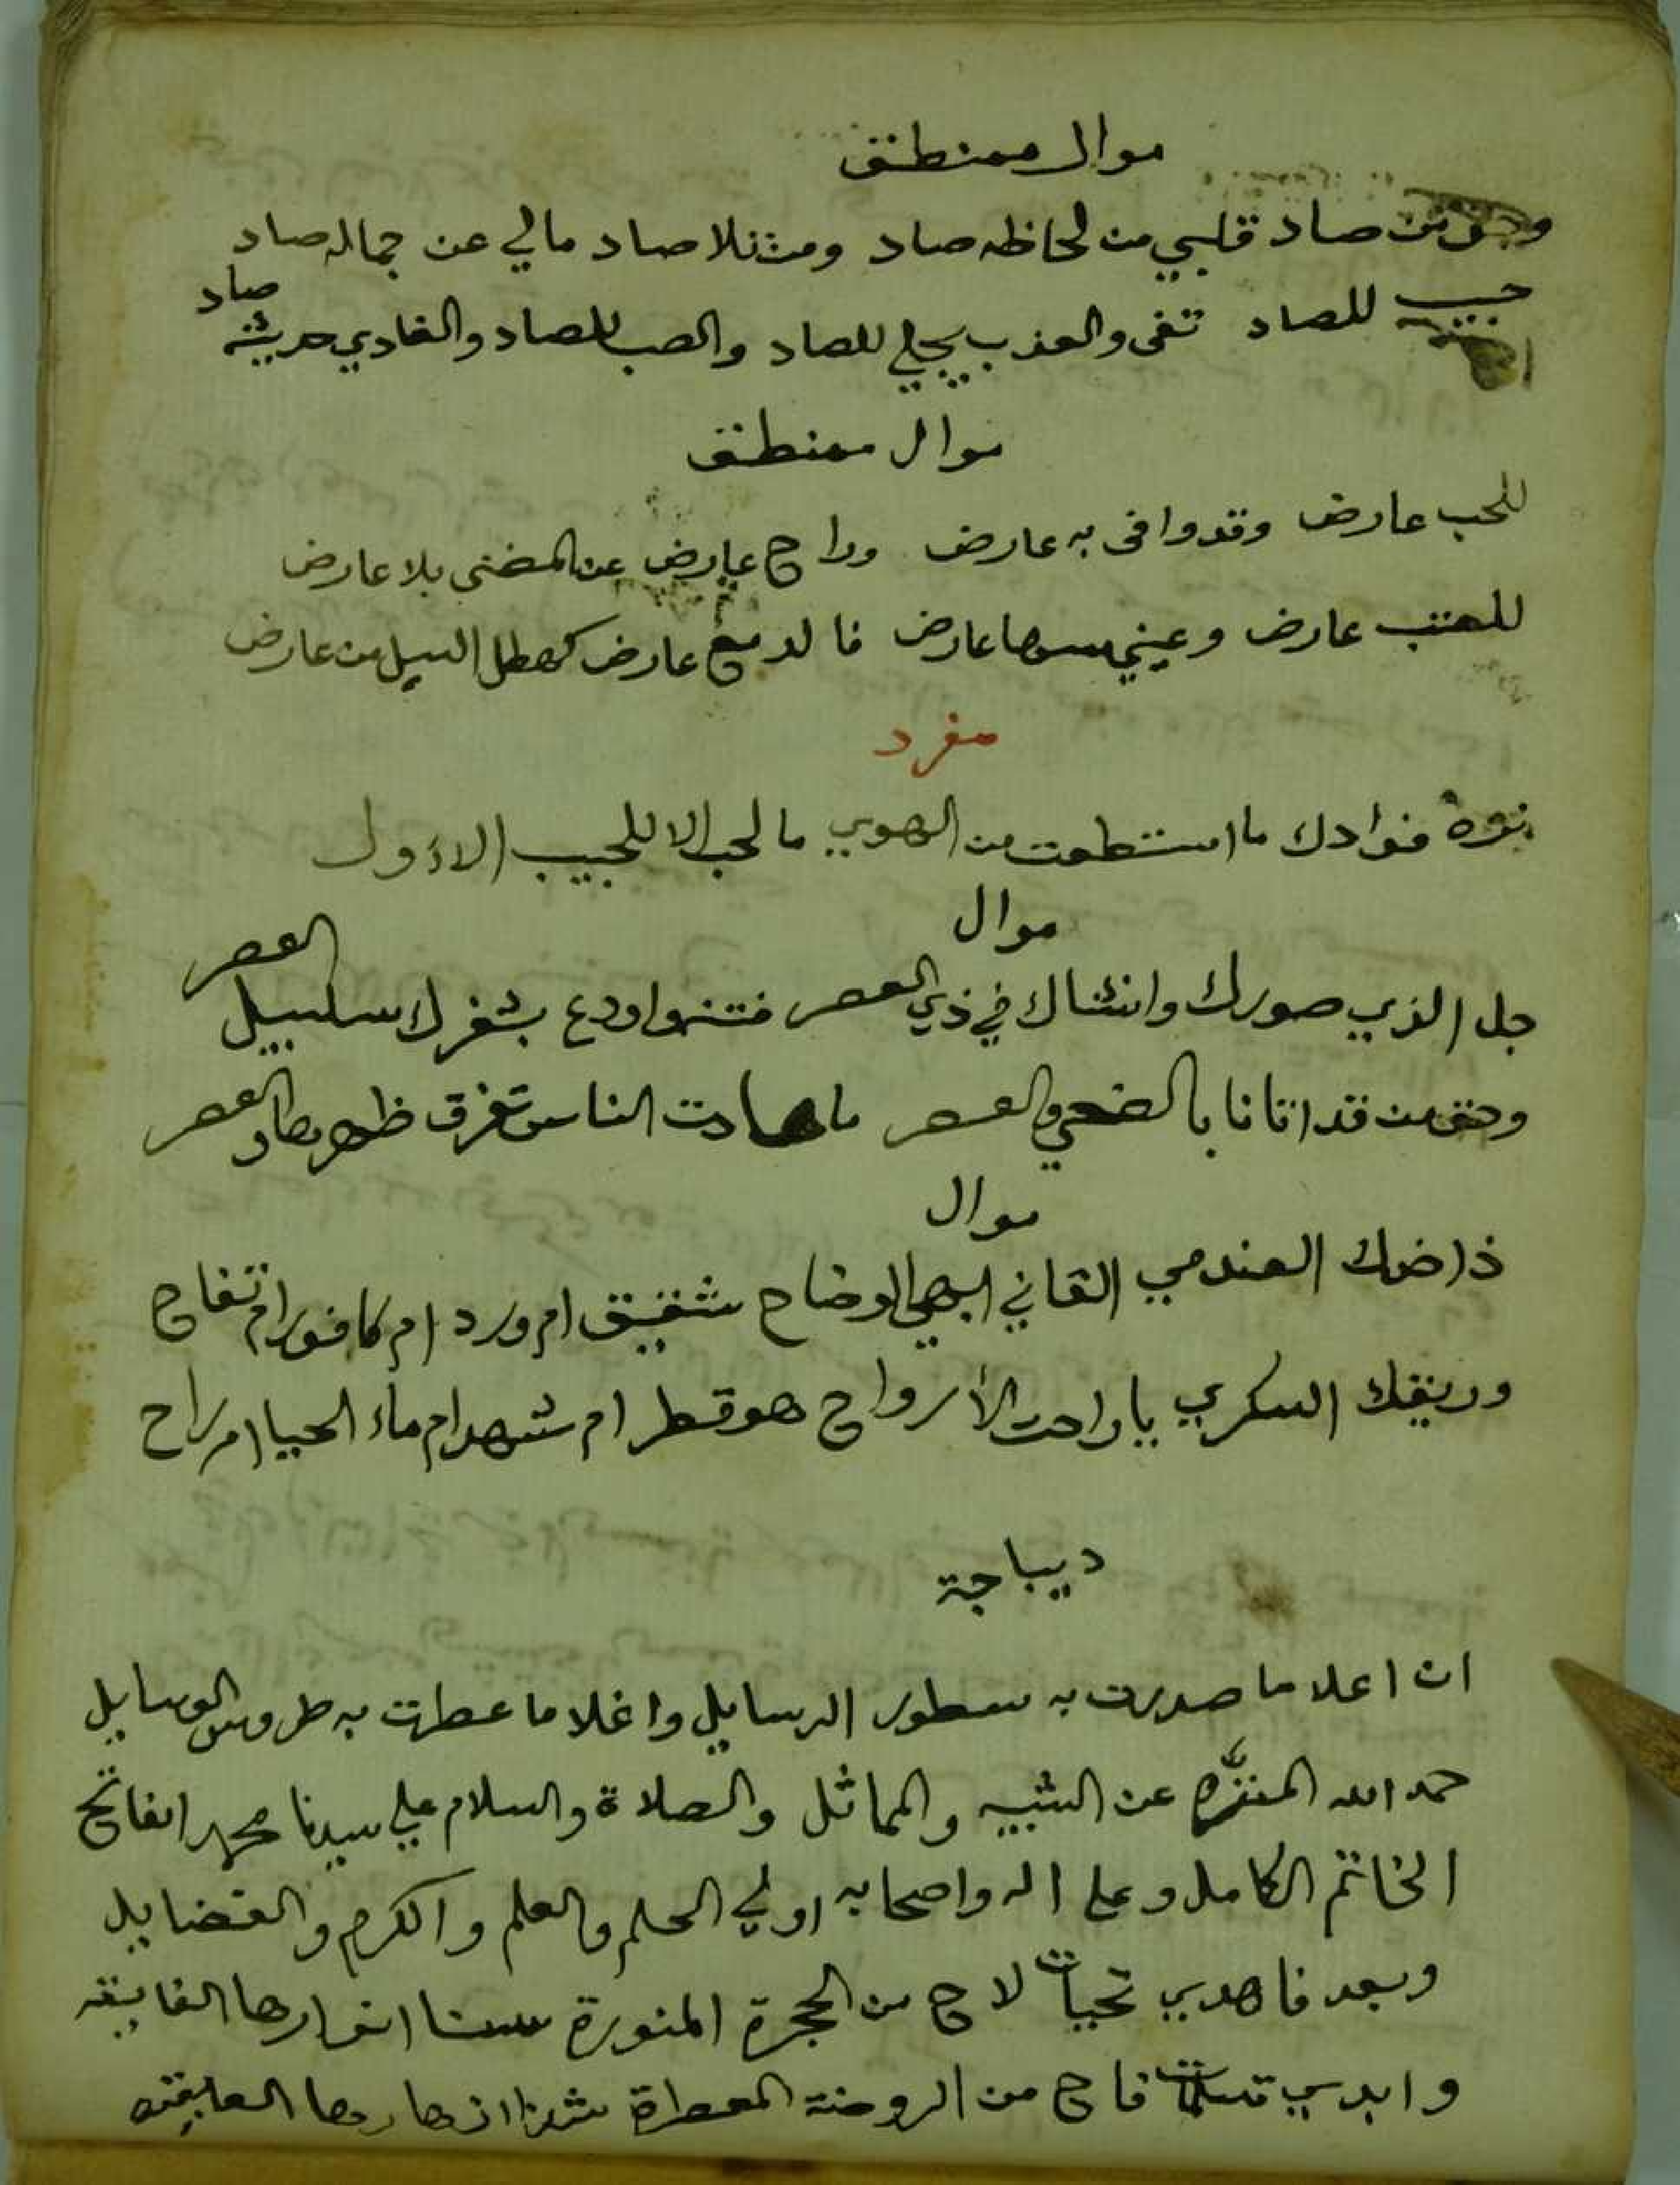 موال ممنطق
وحق من صاد قلبي من لحاظه صاد ومثلا صاد مالي عن جماله صاد
حبيب للصاد تغى والعذب يجلي للصاد والصب للصاد والغادي حديثه صاد
موال ممنطق
للحب عارض وقد وافى به عارض وراح عارض عن المضنى بلا عارض
للعتب عارض وعيني سهاها عارض فالدمع عارض كهطل السيل من عارض
مفرد
نزه فوادك ما استطعت من الهوي مالحب الا للحبيب الاول
موال
جل الذي صورك وانشاك في ذي العصر فتنه اودع بثغرك سلسبيل العصر
وحق من قد اتانا بالضحي والعصر ما عادت الناس تفرق ظهر صاد العصر
موال
ذا خدك العندمي القاني البهي الوضاح شقيق ام ورد ام كافور ام تفاح
وريقك السكري يا راحت الأرواح هو قطر ام شهد ام ماء الحيا ام راح
ديباجة
ان اعلا ما صدرت به سطور الرسايل واغلا ما عطرت به طروس الوسايل
حمد الله المنزه عن الشبيه والمماثل والصلاة والسلام علي سيدنا محمد الفاتح
الخاتم الكامل وعلى اله واصحابه اولي الحلم والعلم والكرم والفضايل
وبعد فاهدي تحيات لاح من الحجرة المنورة سنا انوارها الفايقه
وابدي تسليمات فاح من الروضة المعطرة شذا ازهارها العابقه